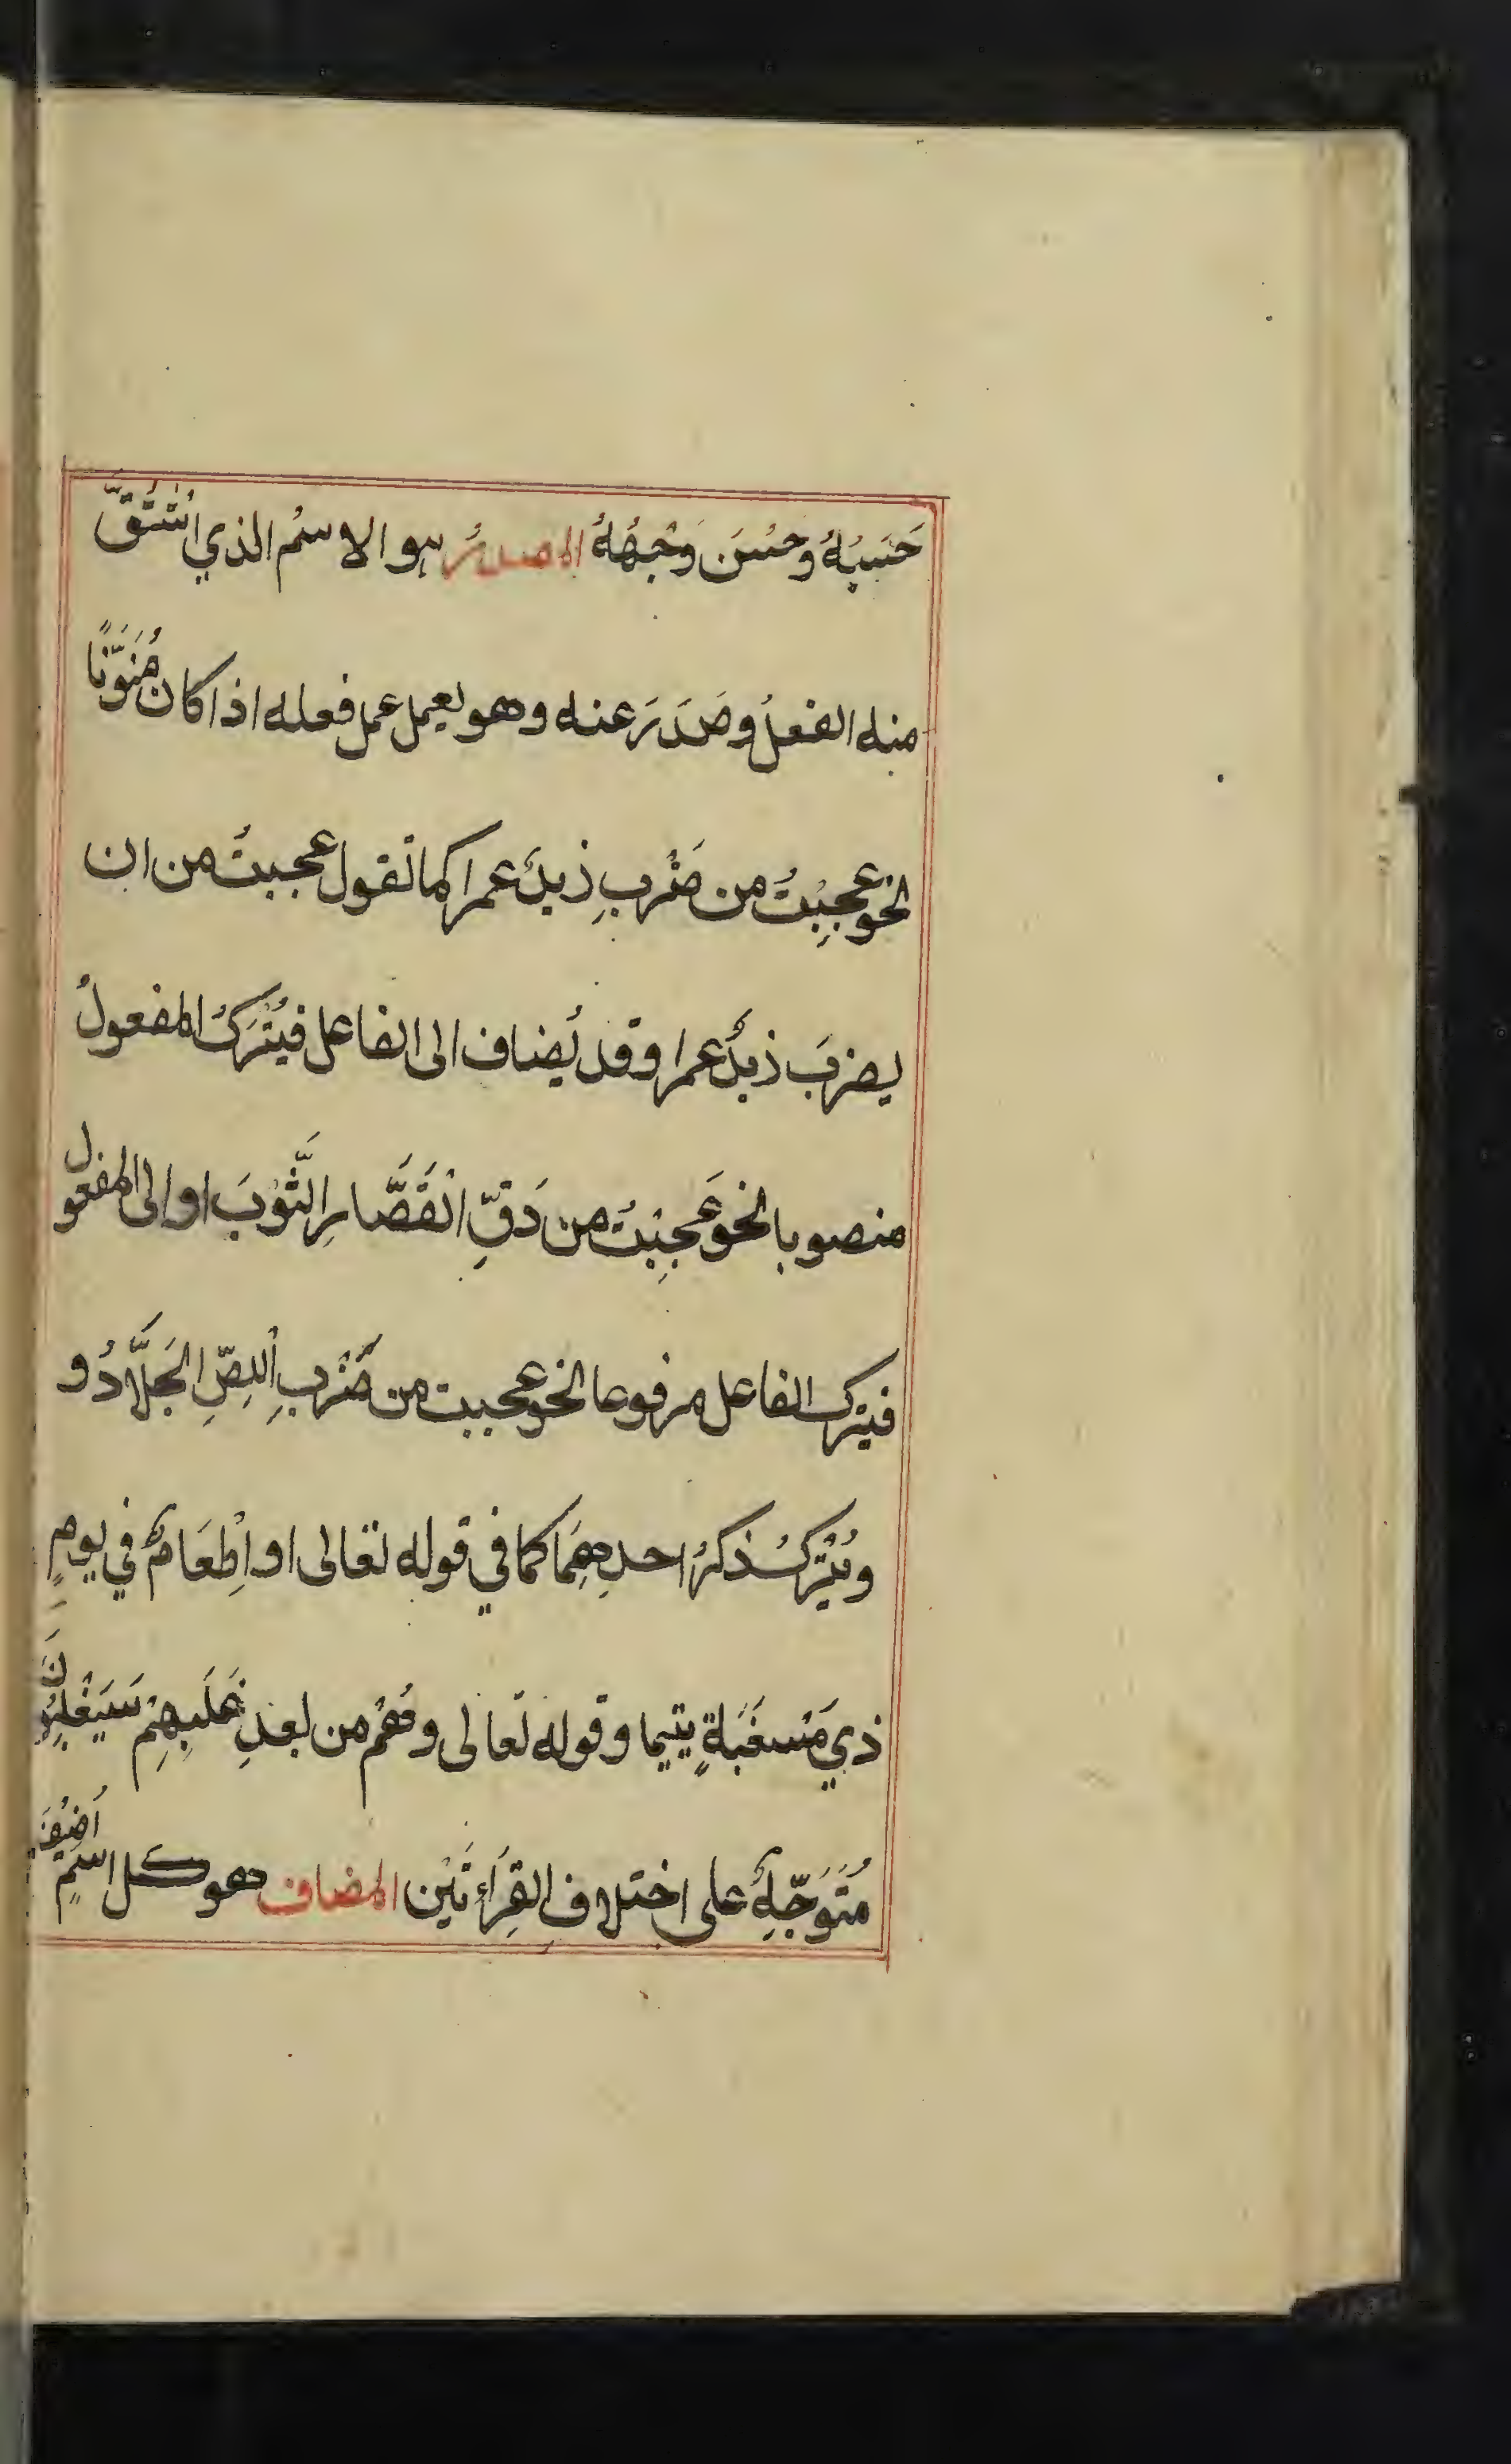 حَسَبُهُ وحَسُنَ وَجْهُهُ المصدرُ هو الاسمُ الذي اشْتُقَّ
منه الفعلُ وصَدَرَ عنه وهو يعمل عمل فعله اذا كان مُنَوَّنًا
نحو عجِبْتُ من ضَرْبٍ زيدٌ عمرا كما تقول عجبتُ من ان
يضربَ زيدٌ عمرا وقد يُضاف الى الفاعل فيُتْرَكُ المفعولُ
منصوبا نحو عَجِبْتُ من دَقِّ القَصَّارِ الثَّوْبَ او الى المفعول
فيترك الفاعل مرفوعا نحو عجبت من ضَرْبِ اللِصِّ الجَلَّادُ و
ويُتْرَكُ ذكرُ احدِهِمَا كما في قوله تعالى او اِطْعَامٌ في يومٍ
ذي مَسْغَبَةٍ يتيما وقوله تعالى وهُمْ من بعدِ غَلَبِهِمْ سَيَغْلِبُونَ
مُتَوَجِّهٌ على اختلافِ القِرَاءتَيْن المضاف هو كل اسمٍ اُضِيْفَ